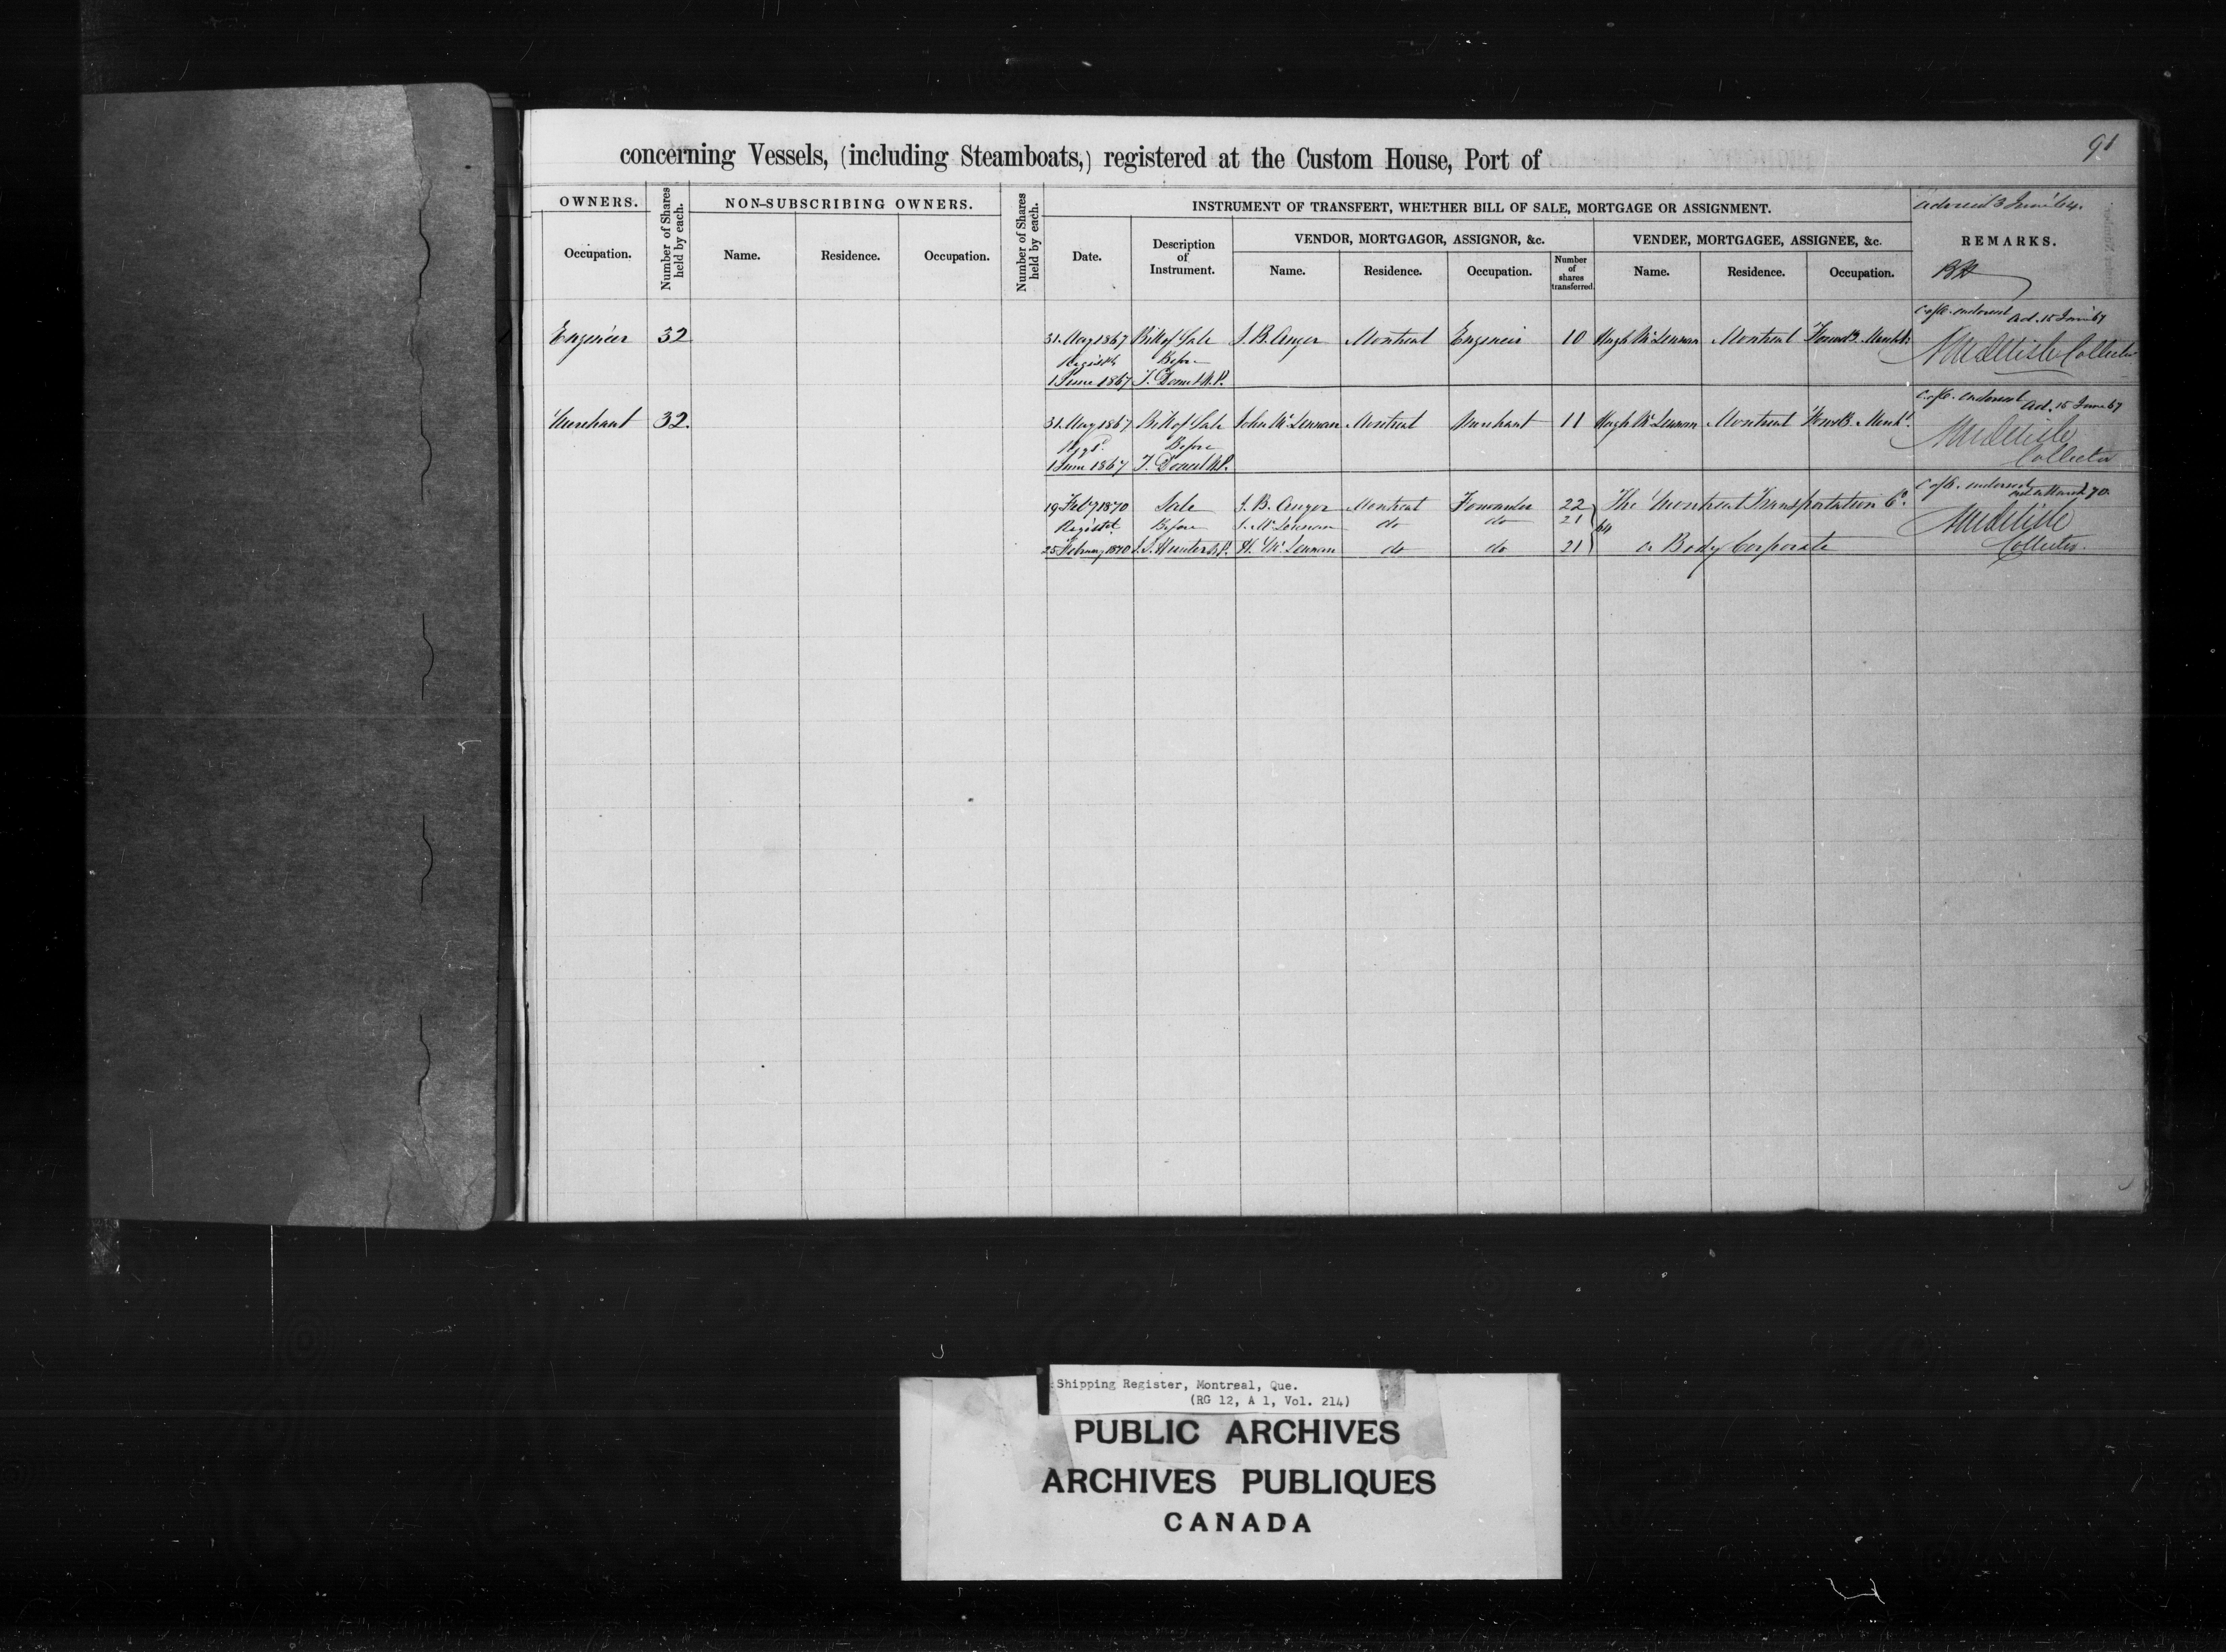 91
concerning Vessels, (including Steamboats,) registered at the Custom House, Port of
OWNERS.
Occupation.
Number of Shares held by each.
NON-SUBSCRIBING OWNERS.
Name. Residence. Occupation.
Number of Shares held by each.
INSTRUMENT OF TRANSFERT, WHETHER BILL OF SALE, MORTGAGE OR ASSIGNMENT.
Date.
Description of Instrument.
VENDOR, MORTGAGOR, ASSIGNOR, &c.
Name. Residence. Occupation.
Number of shares transferred.
VENDEE, MORTGAGEE, ASSIGNEE, &c.
Name. Residence. Occupation.
3 June '64.
REMARKS.
C of O. endorsed Ad. 15 June 67
Engineer 32 31 May 1867 Bill of Sale J. B. Auger Montreal Engineer 10 Hugh McLennan Montreal Collector
Before
1 June 1867
C of O. endorsed Ad. 15 June 67
Merchant 32. 31 May 1867 Bill of Sale John McLennan Montreal Merchant 11 Hugh McLennan Montreal
Before
1 June 1867 Collector
C of O. endorsed
19 Feby 1870 Sale J. B. Auger Montreal Forwarder 22 The Montreal Transportation Co.
Registd. Before J. McLennan do do 21 64
25 February 1870 J. S. Hunter N.P. H. McLennan do do 21 a Body Corporate Collector.
Shipping Register, Montreal, Que.
(RG 12, A 1, Vol. 214)
PUBLIC ARCHIVES
ARCHIVES PUBLIQUES
CANADA